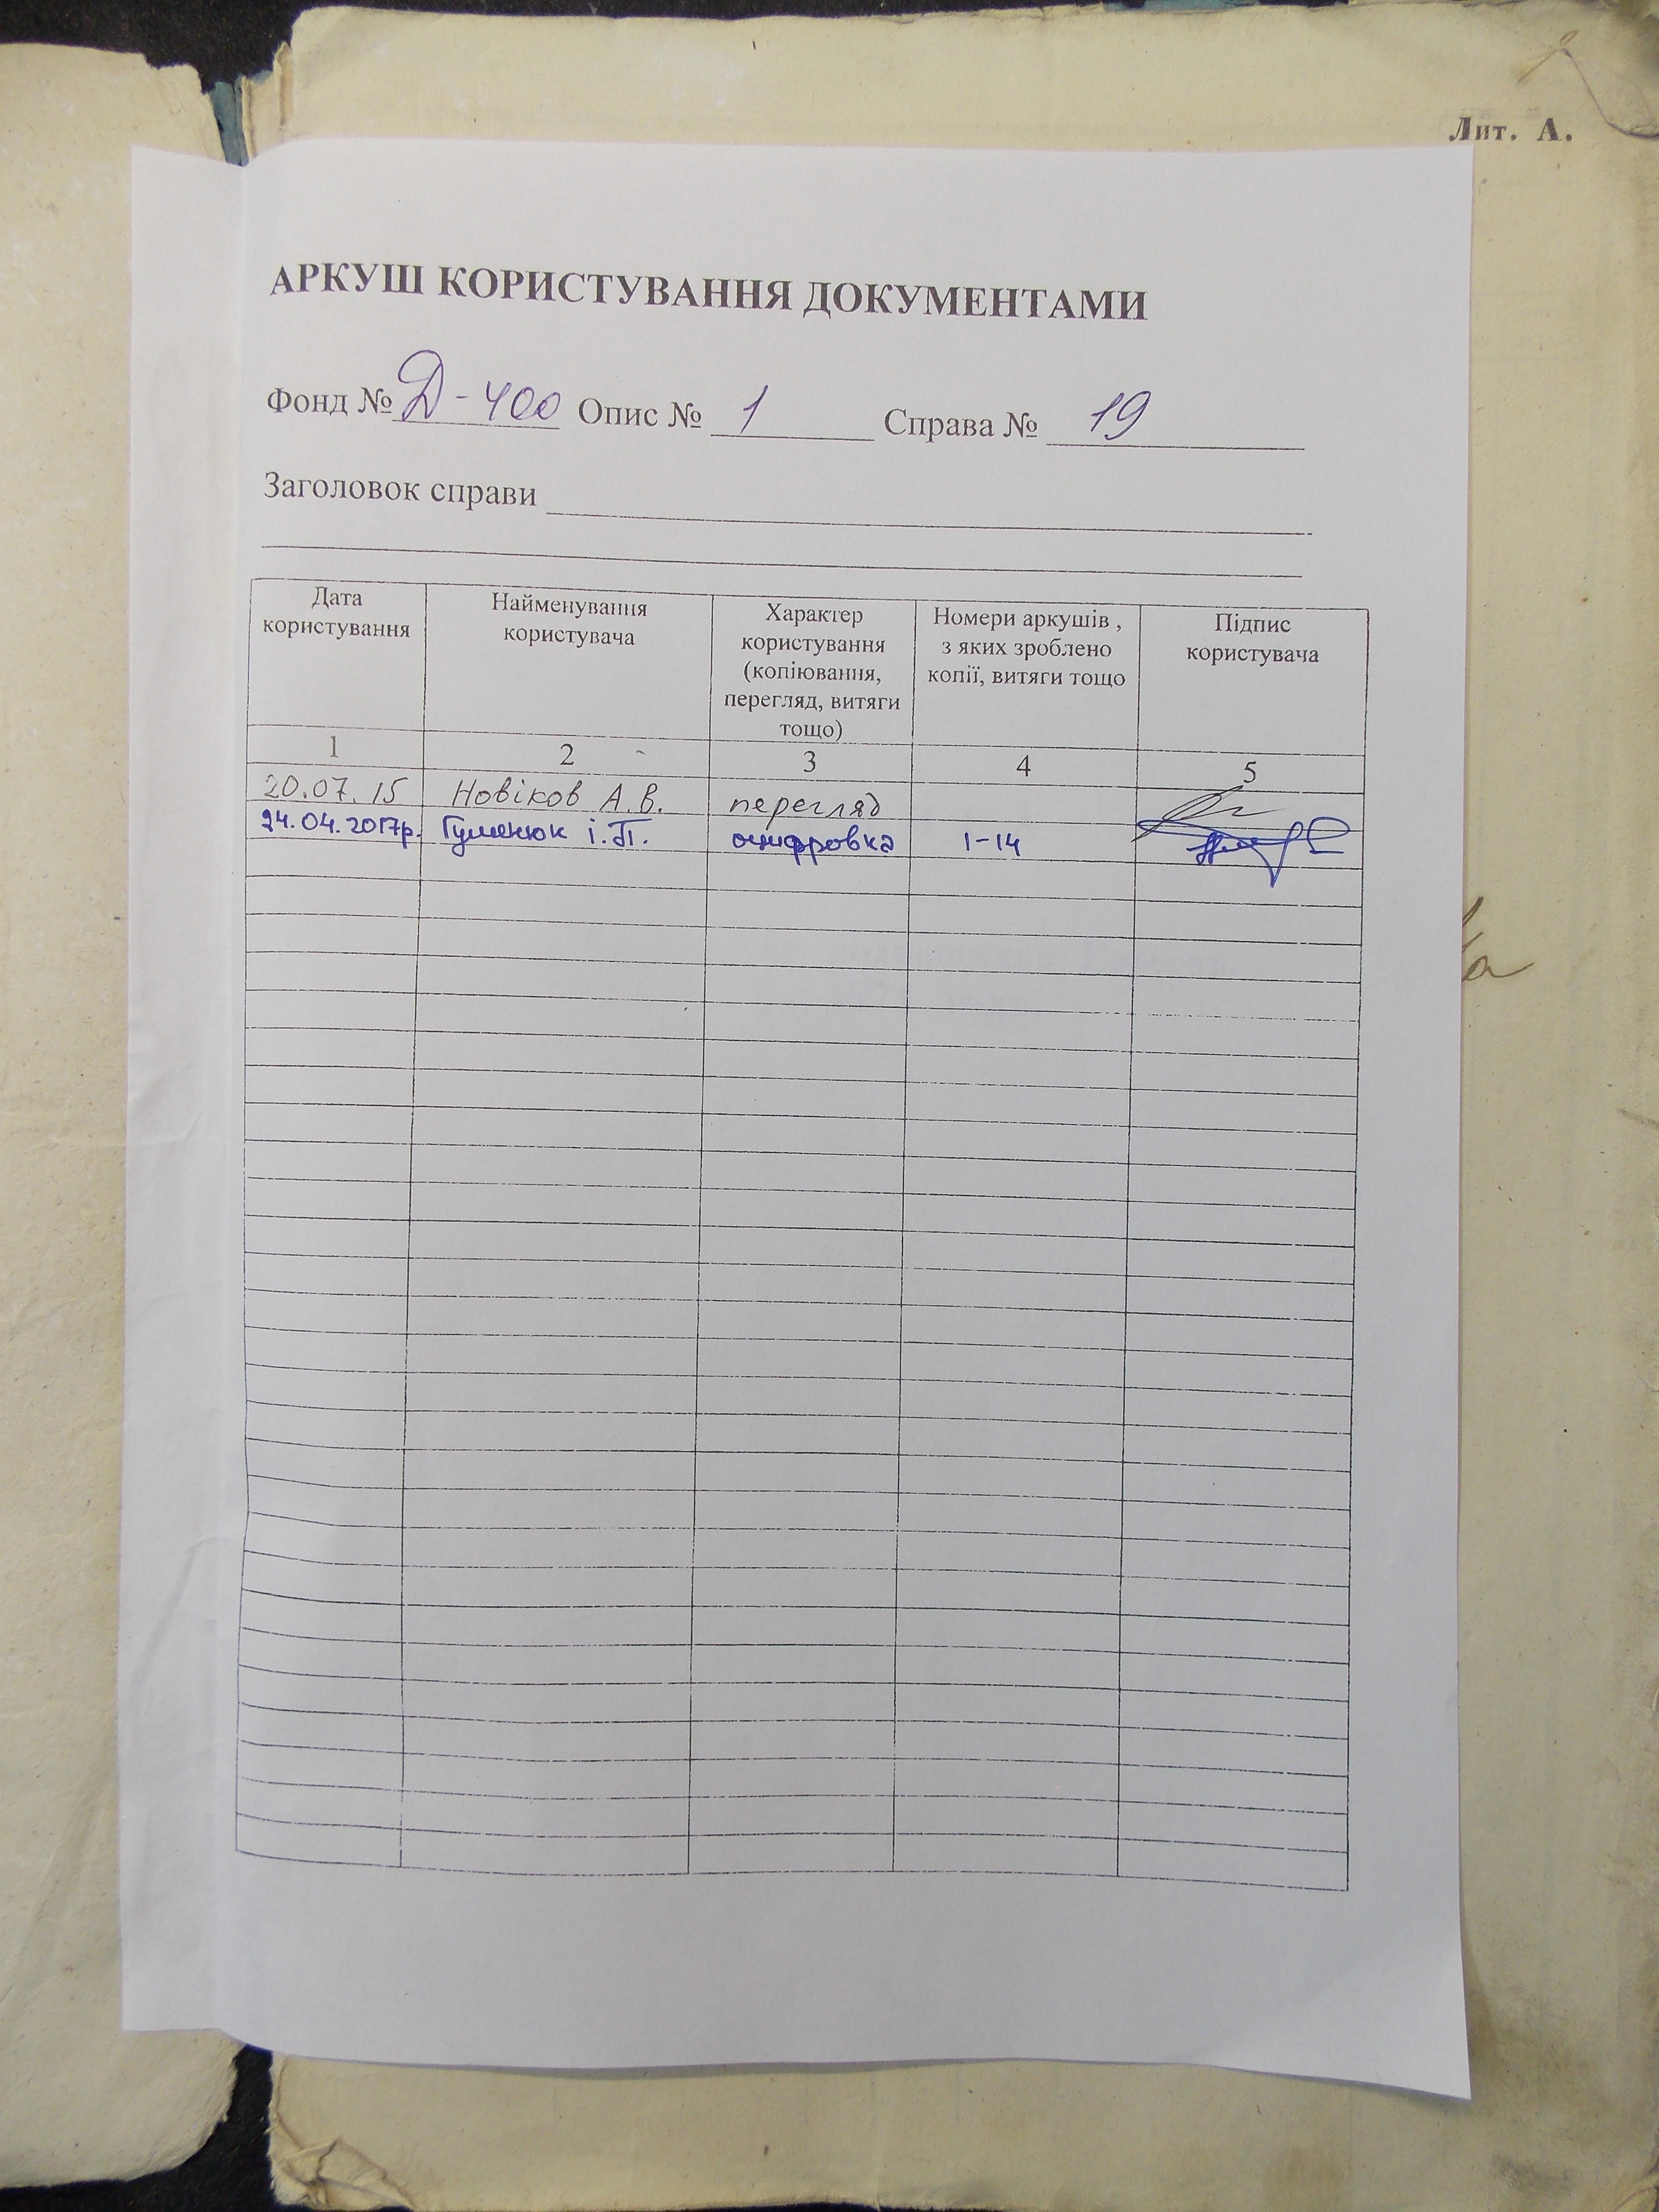 Лит. А.
АРКУШ КОРИСТУВАННЯ ДОКУМЕНТАМИ
Фонд № Д-400 Опис № 1 Справа № 19
Заголовок справи
Дата користування
Найменування користувача
Характер користування (копіювання, перегляд, витяги тощо)
Номери аркушів , з яких зроблено копії, витяги тощо
Підпис користувача
1 2 3 4 5
20.07.15 Новіков А.В. перегляд
24.04.2017р. Гуменюк І.П. оцифровка 1-14